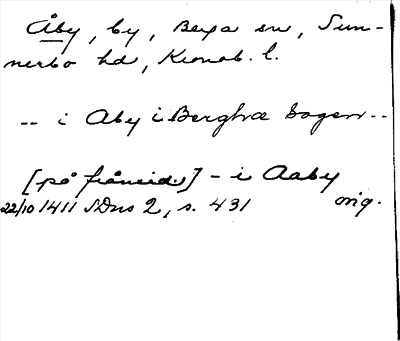 Åby, by, Berga sn, Sun-
nerbo hd, Kronob. l.
-- i Aby i Berghæ sogen --
[på frånsid.] - i Aaby
22/10 1411 SDns 2, s. 431 orig.